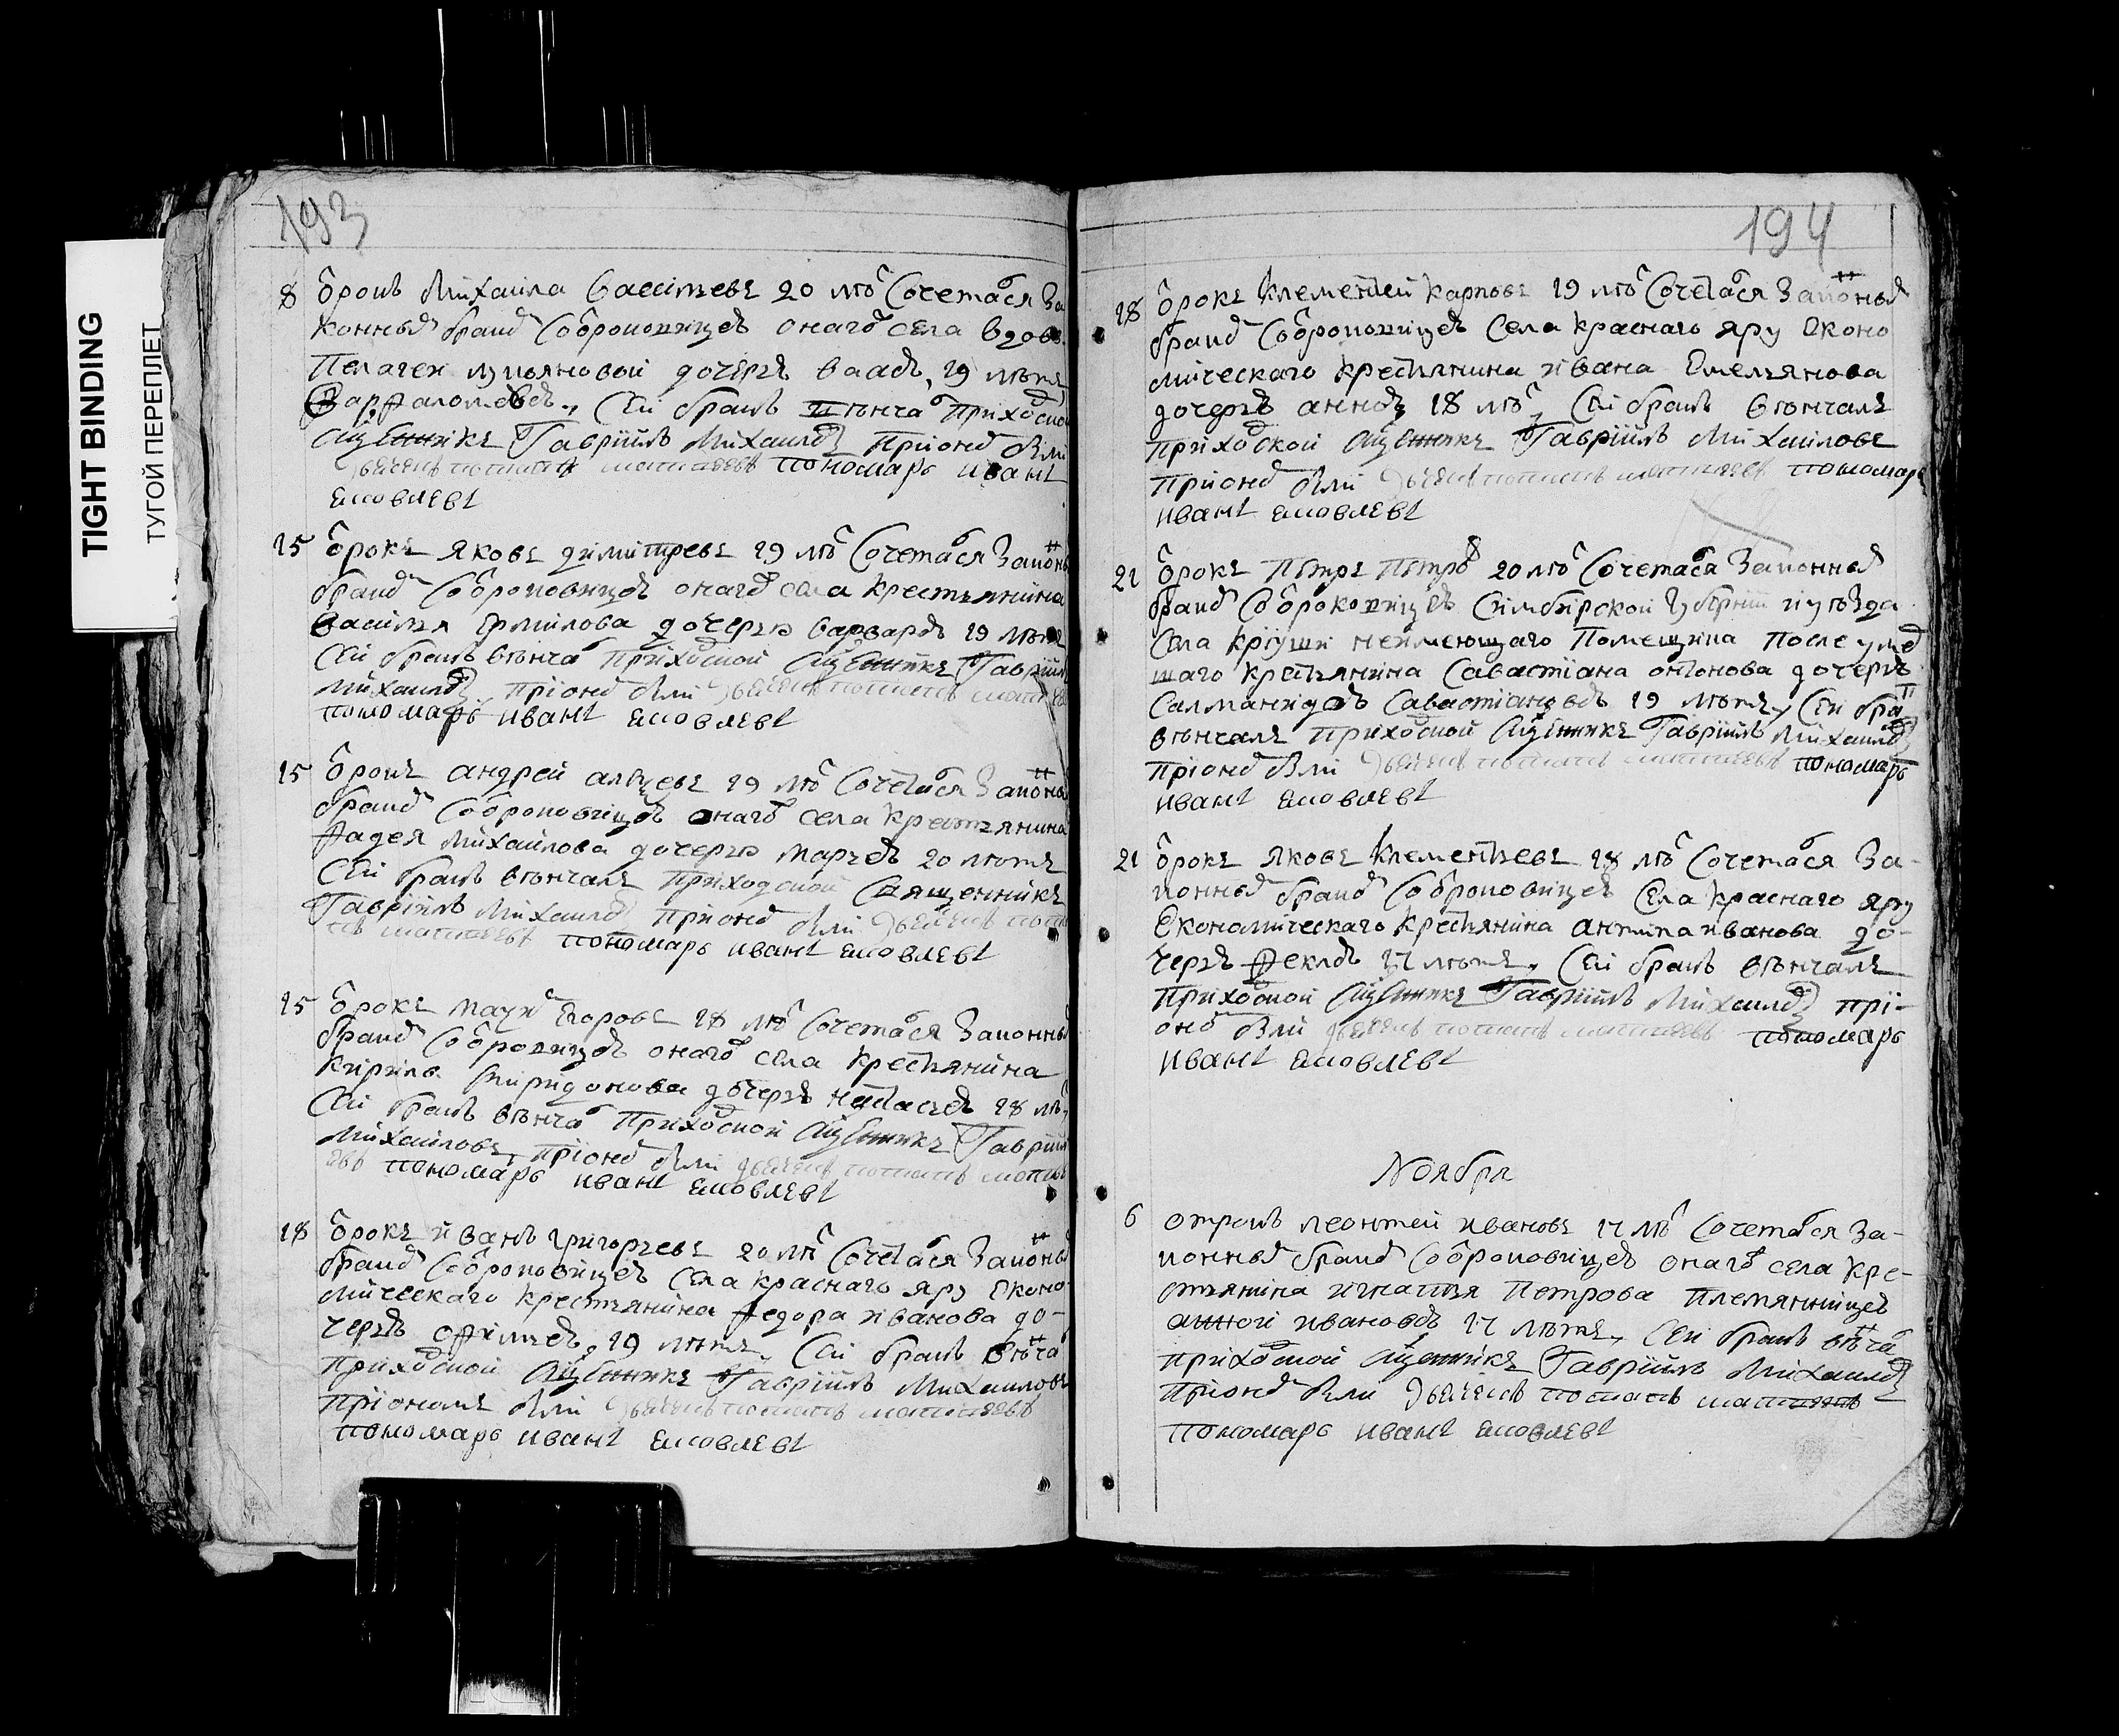 TIGHT BINDING
ТУГОЙ ПЕРЕПЛЕТ
193
8 отрокъ Михаила Васильевъ 20 лѣт Сочетался За
конным браком Со отроковицею онаго села вдовы
Пелагеи Лукьяновой дочерью 19 лѣтъ
Варфаломеевою, Сей бракъ вѣнчал Приходской
Священникъ Гаврiилъ Михаилов При оном были
дьячекъ потапъ матвеевъ пономарь иванъ
Яковлевъ
15 отрокъ Яковъ димитревъ 19 лѣт Сочетался Законным
браком Со отроковицею онаго села крестьянина
Василья Ермилова дочерью варварою 19 лѣтъ
Сей бракъ вѣнчал Приходской Священникъ Гаврiил
Михаилов, при оном были дьячекъ потапъ матвеев
пономарь иванъ Яковлевъ
15 отрокъ андрей 19 лѣт Сочетался Законным
браком Со отроковицею онаго села крестьянина
Фадея Михайлова дочерью марьею 20 лѣтъ
Сей бракъ вѣнчалъ Приходской Священникъ
Гаврiилъ Михаилов при оном были дьячекъ пота
пъ матвеевъ пономарь иванъ Яковлевъ
15 отрокъ Егоровъ 18 лѣт Сочетался Законным
браком Со отроковицею онаго села крестьянина
Кирила Спиридонова дочерью настасьею 18 лѣт
Сей бракъ вѣнчал Приходской Священникъ Гаврiил
Михаиловъ, при оном были дьячекъ потапъ матве
евъ пономарь иванъ Яковлевъ
18 отрокъ иванъ григорьевъ 20 лѣт Сочетался Законным
браком Со отроковицею Села краснаго яру Эконо
мического крестьянина Федора иванова до-
черью 19 лѣтъ, Сей бракъ вѣнчал
Приходской Священникъ Гаврiилъ Михаиловъ
при ономъ были дьячекъ потапъ матвеевъ
пономарь иванъ Яковлевъ
194
18 отрокъ Клементей Карповъ 19 лѣт Сочетался Законным
браком Со отроковицею Села краснаго яру Эконо
мического крестьянина ивана Емельянова
дочерью анною 18 лѣт, Сей бракъ вѣнчалъ
приходской Священникъ Гаврiилъ Михаиловъ
при оном были дьячекъ потапъ матвеевъ пономарь
иванъ Яковлевъ
21 отрокъ Петръ Петров 20 лѣт Сочетался Законным
браком Со отроковицею Симбирской Губернии и уѣзда
Села Крiуши неимеющаго Помещика после умер
шаго крестьянина Савастiана онтонова дочерью
Салманидою Савастiановою 19 лѣтъ, Сей брак
вѣнчалъ Приходской Священникъ Гаврiилъ Михаилов
при оном были дьячекъ потапъ матвеевъ пономарь
иванъ Яковлевъ
21 отрокъ Яковъ Клементьевъ 18 лѣт Сочетался За-
конным браком Со отроковицею Села краснаго яру
Економического крестьянина антипа иванова до-
черью Феклою 17 лѣтъ, Сей бракъ вѣнчалъ
Приходской Священникъ Гаврiилъ Михаилов при-
оном были дьячекъ потапъ матвеевъ пономарь
иванъ Яковлевъ
Ноября
6 отрокъ леонтей ивановъ 17 лѣт Сочетался За-
конным браком Со отроковицею онаго села кре-
стьянина игнатья Петрова Племянницею
анной ивановою 17 лѣтъ, Сей бракъ вѣнчал
приходской Священникъ Гаврiилъ Михаилов
при оном были дьячекъ потапъ матвеевъ
пономарь иванъ Яковлевъ